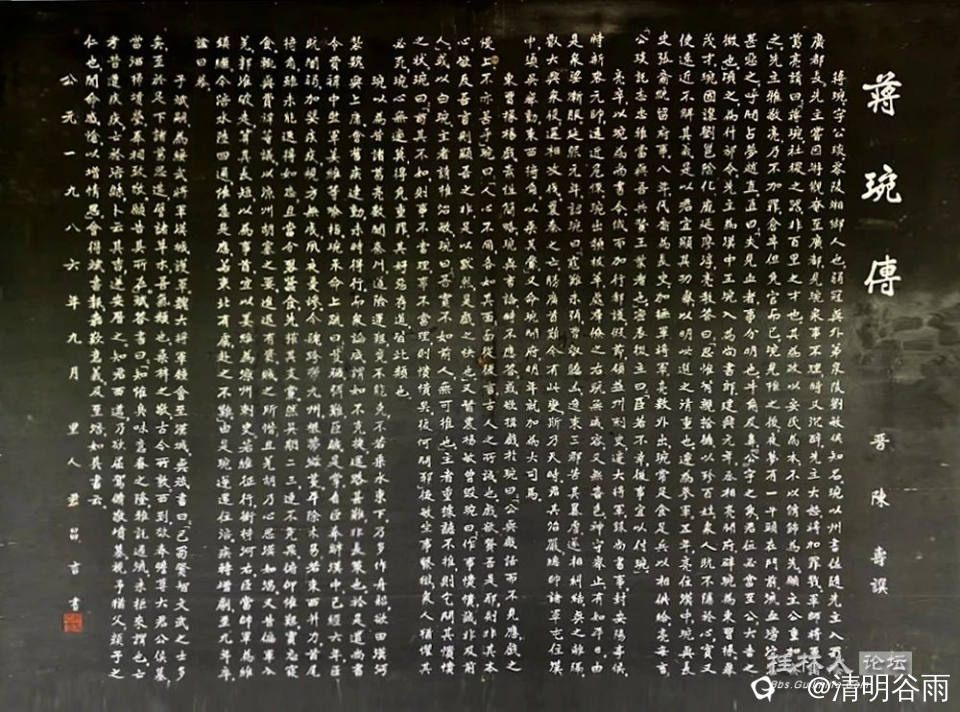 蔣琬傳
晉 陳壽 譔
蔣琬字公琰零陵湘鄉人也弱冠與外弟泉陵劉敏俱知名琬以州書佐隨先主入蜀除
廣都長先主嘗因游觀奄至廣都見琬衆事不理時又沉醉先主大怒將加罪戮軍師將軍諸
葛亮請曰蔣琬社稷之器非百里之才也其為政以安民為本不以脩飾為先願主公重加察
之先主雅敬亮乃不加罪倉卒但免官而已琬見推之後夜夢有一牛頭在門前流血滂沱意
甚惡之呼問占夢趙直直曰夫見血者事分明也牛角及鼻公字之象君位必當至公大吉之
徵也頃之為什邡令先主為漢中王琬入為尚書郎建興元年丞相亮開府辟琬為東曹掾舉
茂才琬固讓劉邕陰化龐延廖淳亮教答曰思惟背親捨德以殄百姓衆人既不隱於心實又
使遠近不解其義是以君宜顯其功舉以明此選之清重也遷為參軍五年亮住漢中琬與長
史張裔統留府事八年代裔為長史加撫軍將軍亮數外出琬常足食足兵以相供給亮每言
公琰託志忠雅當與吾共贊王業者也密表後主曰臣若不幸後事宜以付琬
亮卒以琬為尚書令俄而加行都護假節領益州刺史遷大將軍錄尚書事封安陽亭侯
時新喪元帥遠近危悚琬出類拔萃處羣僚之右既無戚容又無喜色神守舉止有如平日由
是衆望漸服延熙元年詔琬曰寇難未弭曹叡驕凶遼東三郡苦其暴虐遂相糾結與之離隔
叡大興衆役還相攻伐曩秦之亡勝廣首難今有此變斯乃天時也君其治嚴總帥諸軍屯住漢
中須吳舉動東西掎角以乘其釁又命琬開府明年就加為大司馬
東曹掾楊戲素性簡略琬與言論時不應答或欲搆戲於琬曰公與戲語而不見應戲之
慢上不亦甚乎琬曰人心不同各如其面面從後言古人之所誡也戲欲贊吾是耶則非其本
心欲反吾言則顯吾之非是以默然是戲之快也又督農楊敏曾毀琬曰作事憒憒誠非及前
人或以白琬主者請推治敏琬曰吾實不如前人無可推也主者重據聽不推則乞問其憒憒
之狀琬曰苟其不如則事不當理事不當理則憒憒矣復何問耶後敏坐事繫獄衆人猶懼其
必死琬心無適莫得免重罪其好惡存道皆此類也
琬以為昔諸葛亮數闚秦川道險運艱竟不能克不若乘水東下乃多作舟船欲由漢沔
襲魏興上庸會舊疾連動未時得行而衆論咸謂如不克捷還路甚難非長策也於是遣尚書
令費禕中監軍姜維等喻指琬承命上疏曰芟穢弭難臣職是掌自臣奉辭漢中已經六年臣
既闇弱加嬰疾疢規方無成夙夜憂慘今魏跨帶九州根蔕滋蔓平除未易若東西并力首尾
掎角雖未能速得如志且當分裂蠶食先摧其支黨然吳期二三連不克果俯仰惟艱實忘寢
食輒與費禕等議以涼州胡塞之要進退有資賊之所惜且羌胡乃心思漢如渴又昔偏軍入
羌郭淮破走算其長短以為事首宜以姜維為涼州刺史若維征行銜持河右臣當帥軍為維
鎮繼今涪水陸四通惟急是應若東北有虞赴之不難由是琬遂還住涪疾轉增劇至九年卒
諡曰恭
子斌嗣為綏武將軍漢城護軍魏大將軍鍾會至漢城與斌書曰巴蜀賢智文武之士多
矣至於足下諸葛思遠譬諸草木吾氣類也桑梓之敬古今所敦西到欲奉瞻尊大君公侯墓
當洒掃墳塋奉祠致敬願告其所在斌答書曰知惟臭味意眷之隆雅託通流未拒來謂也亡
考昔遭疾疢亡於涪縣卜云其吉遂安厝之知君西邁乃欲屈駕脩敬墳墓視予猶父顏子之
仁也聞命感愴以增情思會得斌書報嘉歎意義及至涪如其書云
公元一九八六年九月 里人 昌言書
桂林人论坛
@清明谷雨